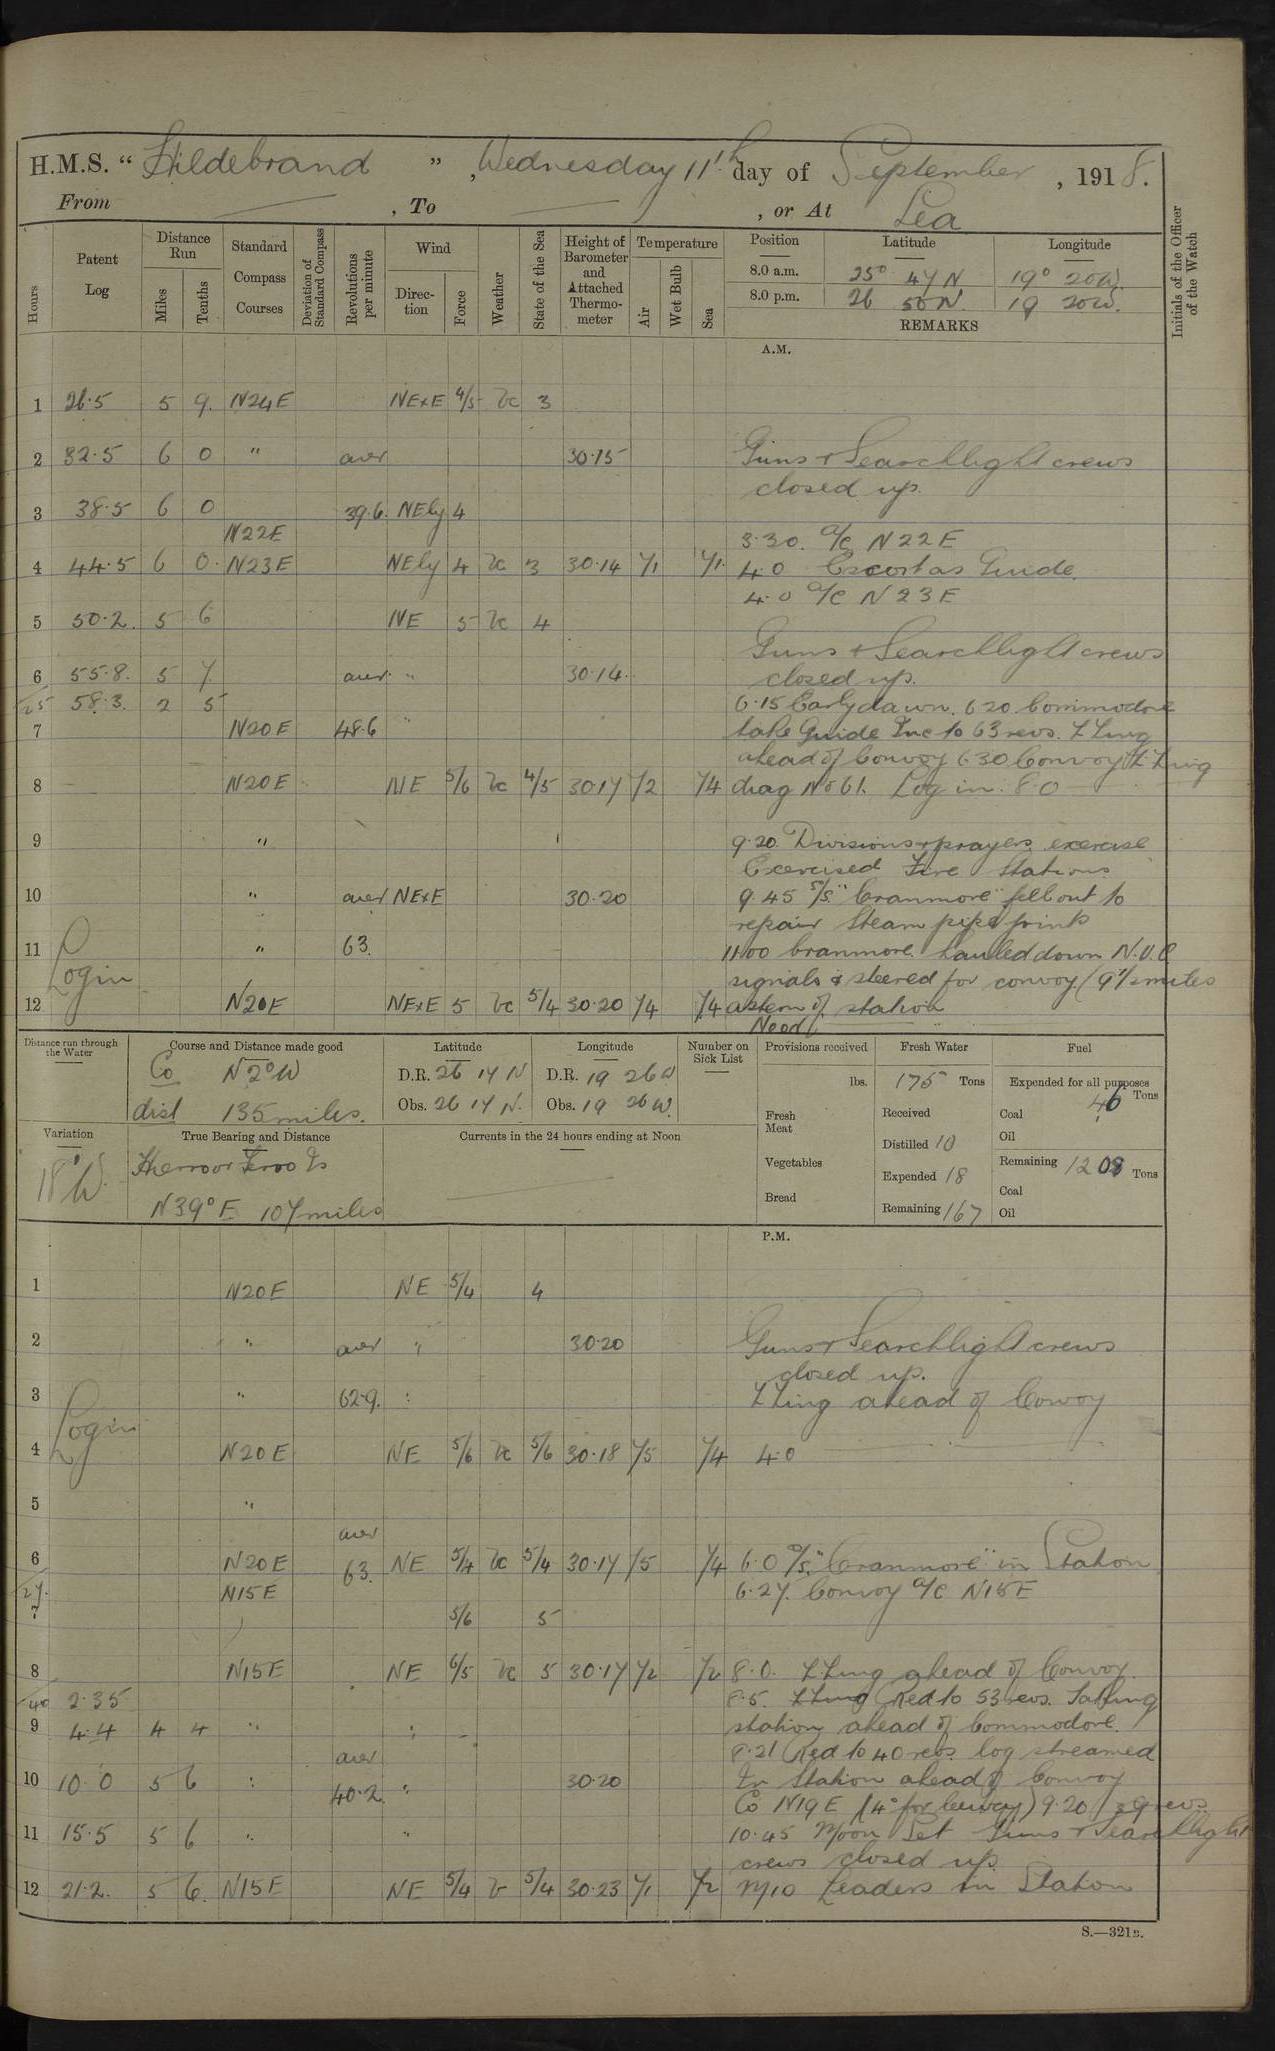 H.M.S. “ Hildebrand ”, Wednesday 11th day of September, 1918.
From — , To — , or At Sea
Hours
Patent Log
Distance Run
Miles
Tenths
Standard Compass Courses
Deviation of Standard Compass
Revolutions per minute
Wind
Direction
Force
Weather
State of the Sea
Height of Barometer and Attached Thermometer
Temperature
Air
Wet Bulb
Sea
Position Latitude Longitude
8.0 a.m. 25° 47 N 19° 20 W.
8.0 p.m. 26 50 N 19 20 W.
REMARKS
Initials of the Officer of the Watch
A.M.
1 26.5 5 9. N24E NExE 4/5 bc 3
2 32.5 6 0 " aver 30.15 Guns + Searchlight crews
closed up.
3 38.5 6 0 39.6. NEly 4
N22E 3.30. a/c N22E
4 44.5 6 0. N23E NEly 4 bc 3 30.14 71 71. 4.0 Escort as Guide.
4.0 a/c N23E
5 50.2 5 6 NE 5 bc 4
Guns + Searchlight crews
6 55.8. 5 7 aver " 30.14. closed up.
25 58.3. 2 5 6.15 Early dawn. 6.20 Commodore
7 N20E 48.6 " take Guide Inc to 63 revs. ZZing
ahead of Convoy 6.30 Convoy ZZing
8 N20E NE 5/6 bc 4/5 30.17 72 74 diag No 61. Log in. 8.0
9 " 9.20. Divisions + prayers exercise
Exercised Fire Stations
10 " aver NExE 30.20 9.45 S/S. "Cranmore" fell out to
repair steam pipe joint
11 Log in " 63. 11.00 Cranmore hauled down N.U.C
signals & steered for convoy (9½ miles
12 N20E NExE 5 bc 5/4 30.20 74 74 astern of station
Distance run through the Water
Course and Distance made good
Co N2°W
dist 135 miles.
Latitude
D.R. 26 17 N
Obs. 26 17 N.
Longitude
D.R. 19 26 W
Obs. 19 26 W.
Number on Sick List
Provisions received
lbs.
Fresh Meat
Vegetables
Bread
Fresh Water
175 Tons
Received
Distilled 10
Expended 18
Remaining 167
Fuel
Expended for all purposes
Coal 46 Tons
Oil
Remaining 1208 Tons
Coal
Oil
Variation
18°W.
True Bearing and Distance
Ferro Is
N39°E 107 miles
Currents in the 24 hours ending at Noon
P.M.
1 N20E NE 5/4 4
2 " aver " 30.20 Guns + Searchlight crews
closed up.
3 " 62.9. " ZZing ahead of Convoy
Log in
4 N20E NE 5/6 bc 5/6 30.18 75 74 4.0
5 "
aver
6 N20E 63. NE 5/4 bc 5/4 30.17 75 74 6.0 S/S. "Cranmore" in Station
27. N15E 6.27. Convoy a/c N15E
7 5/6 5
8 N15E NE 6/5 bc 5 30.17 72 72 8.0. ZZing ahead of Convoy.
40 2.35 8.5. ZZing Red to 53 revs. Taking
9 4.4 4 4 " " station ahead of Commodore.
aver 8.21 Red to 40 revs. log streamed
10 10.0 5 6 " 40.2. " 30.20 In Station ahead of Convoy
Co N19E (4° for leeway) 9.20 / 39 revs
11 15.5 5 6 " " 10.45 Moon Set Guns + Searchlight
crews closed up.
12 21.2. 5 6. N15E NE 5/4 b 5/4 30.23 71 72 Leaders in Station
S.—321B.